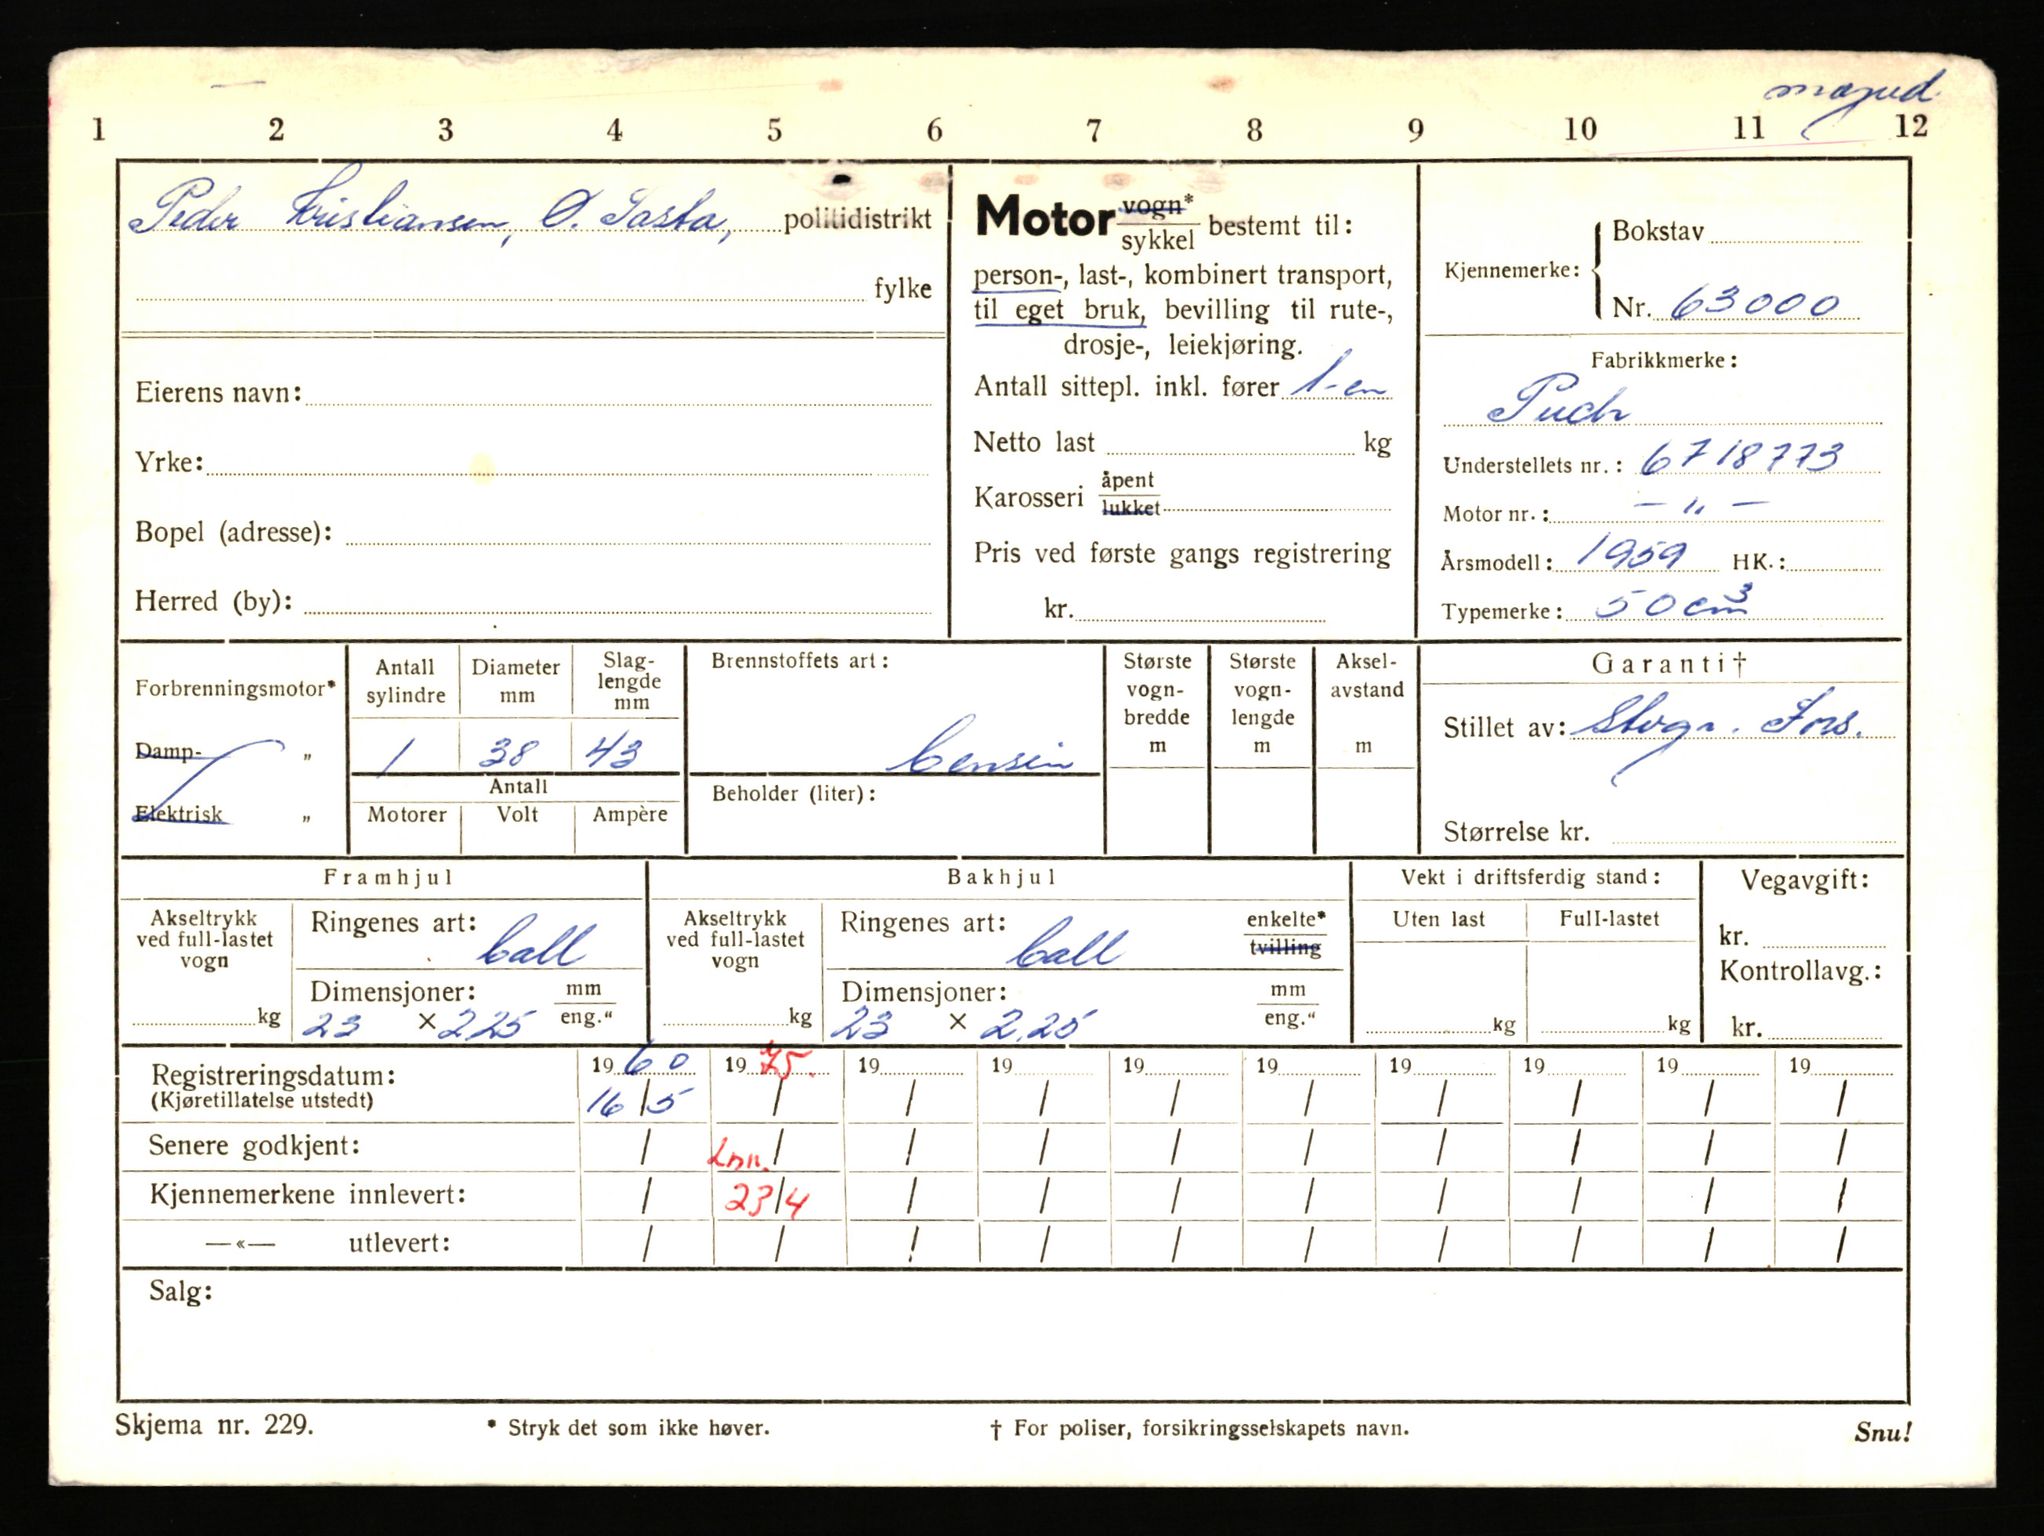 1 2 3 4 5 6 7 8 9 10 11 12
Peder Kristiansen, Ø. Sasta, politidistrikt
fylke
Eierens navn:
Yrke:
Bopel (adresse):
Herred (by):
Motor vogn* sykkel bestemt til:
person-, last-, kombinert transport,
til eget bruk, bevilling til rute-,
drosje-, leiekjøring.
Antall sittepl. inkl. fører 1-en
Netto last kg
Karosseri åpent lukket
Pris ved første gangs registrering
kr.
Kjennemerke: Bokstav
Nr. 63000
Fabrikkmerke:
Puch
Understellets nr.: 6718773
Motor nr.: — „ —
Årsmodell: 1959 HK.:
Typemerke: 50 cm³
Forbrenningsmotor*
Damp- „
Elektrisk „
Antall sylindre
Diameter mm
Slag- lengde mm
1 38 43
Antall
Motorer Volt Ampère
Brennstoffets art:
bensin
Beholder (liter):
Største vogn- bredde m
Største vogn- lengde m
Aksel- avstand m
Garanti†
Stillet av:
Størrelse kr.
Framhjul
Akseltrykk ved full-lastet vogn
kg
Ringenes art:
ball
Dimensjoner: mm eng."
23 × 2.25
Bakhjul
Akseltrykk ved full-lastet vogn
kg
Ringenes art: enkelte* tvilling
ball
Dimensjoner: mm eng."
23 × 2.25
Vekt i driftsferdig stand:
Uten last Full-lastet
kg kg
Vegavgift:
kr.
Kontrollavg.:
kr.
Registreringsdatum: 1960 1975. 19 19 19 19 19 19 19 19
(Kjøretillatelse utstedt) 16/5 / / / / / / / / /
Senere godkjent: / / / / / / / / / /
Inn.
Kjennemerkene innlevert: / 23/4 / / / / / / / /
—«— utlevert: / / / / / / / / / /
Salg:
Skjema nr. 229. * Stryk det som ikke høver. † For poliser, forsikringsselskapets navn. Snu!